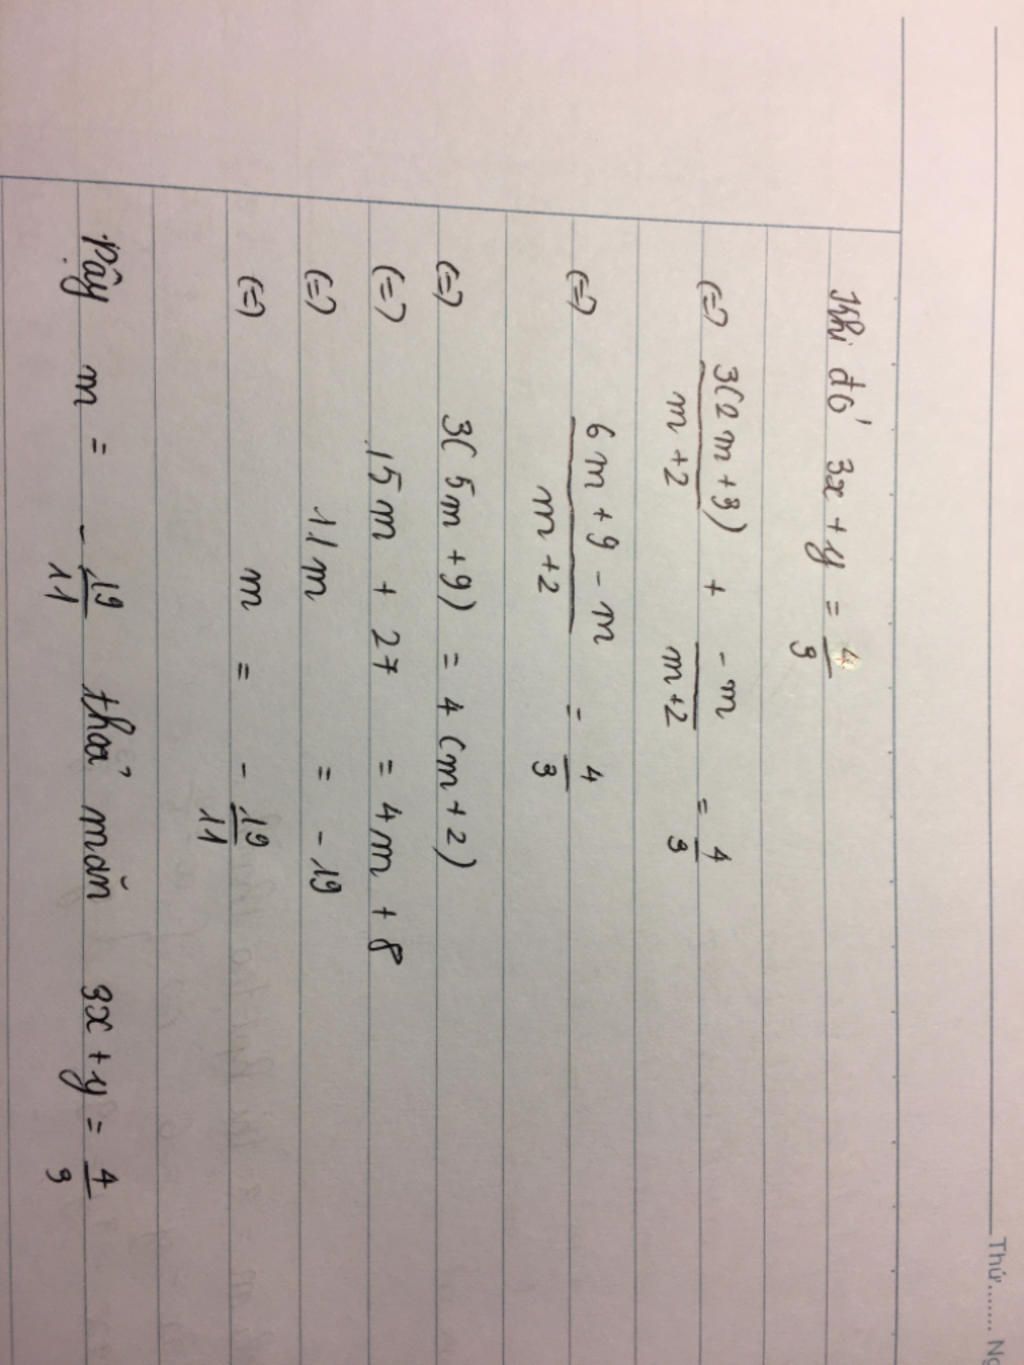 Thứ....... Ng
Khi đó 3x + y = 4/3
(=) 3(2m+3)/m+2 + -m/m+2 = 4/3
(=) 6m+9-m/m+2 = 4/3
(=) 3(5m+9) = 4(m+2)
(=) 15m + 27 = 4m + 8
(=) 11m = -19
(=) m = -19/11
Vậy m = -19/11 thoả mãn 3x+y = 4/3